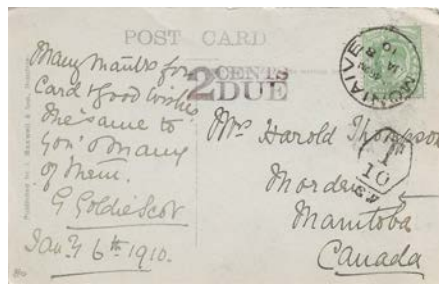 POST CARD
2 CENTS DUE
MONIAIVE
Many thanks for
Card & good wishes
the same to
you & many
of them.
G Goldie Scot
Jany 6th 1910.
Mrs Harold Thompson
Morden
Manitoba
Canada
T
10